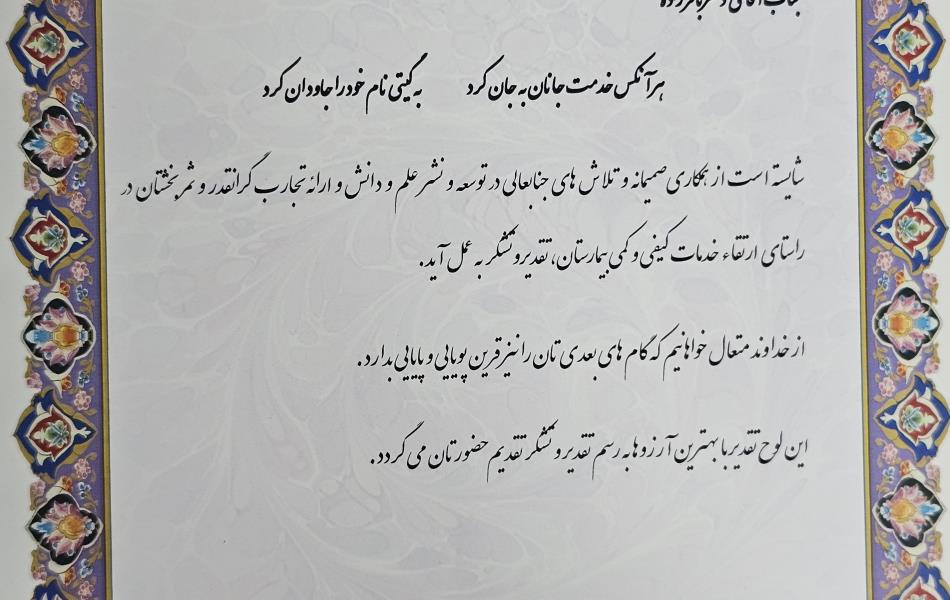 جناب آقای دکتر
هرآنکس خدمت جانان به جان کرد به گیتی نام خود را جاودان کرد
شایسته است از همکاری صمیمانه و تلاش های جنابعالی در توسعه و نشر علم و دانش و ارائه تجارب گرانقدر و ثمربخشتان در
راستای ارتقاء خدمات کیفی و کمی بیمارستان، تقدیر و تشکر به عمل آید.
از خداوند متعال خواهانیم که گام های بعدی تان را نیز قرین پویایی و پایایی بدارد.
این لوح تقدیر با بهترین آرزوها به رسم تقدیر و تشکر تقدیم حضورتان می گردد.